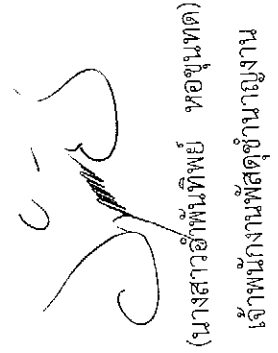 (นางสาวอำพันทิพย์ หอขุนทด)
เจ้าพนักงานพัสดุชำนาญงาน